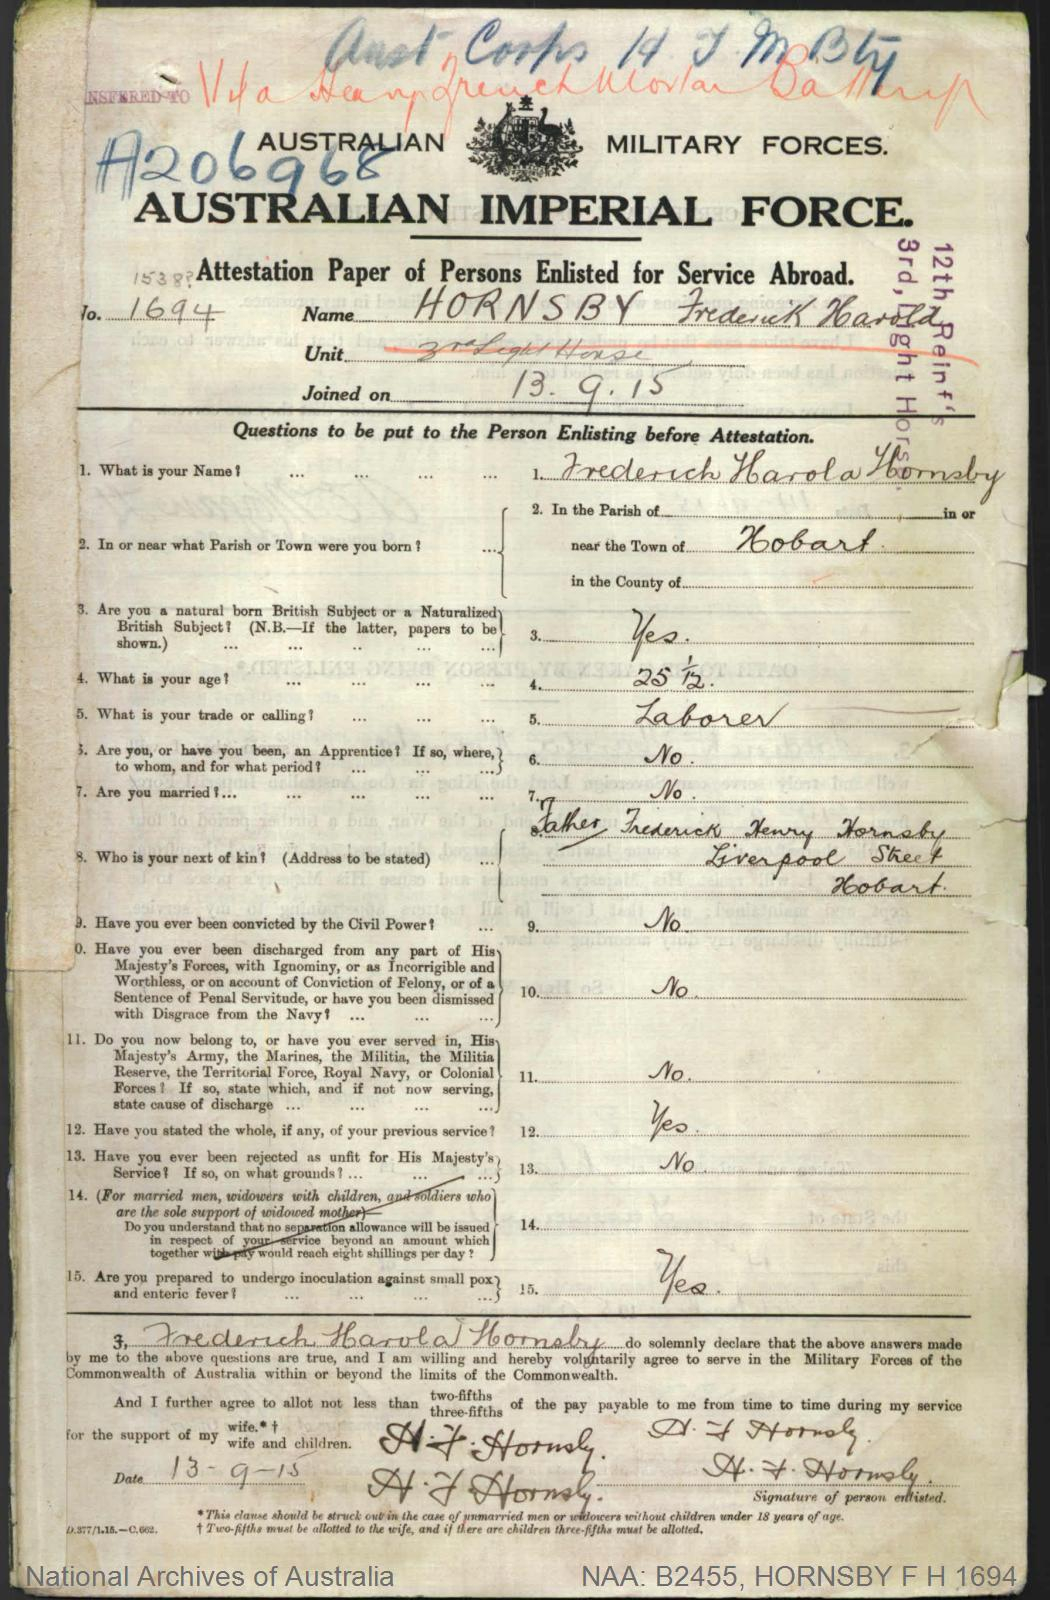 Aust Corps H T M Bty
NSFERRED TO V4a Heavy Trench Mortar Battery
AUSTRALIAN MILITARY FORCES.
A206968
AUSTRALIAN IMPERIAL FORCE.
Attestation Paper of Persons Enlisted for Service Abroad.
12th, Reinf's
3rd, Light Horse.
1538?
No. 1694 Name HORNSBY Frederick Harold
Unit 3rd Light Horse
Joined on 13.9.15
Questions to be put to the Person Enlisting before Attestation.
1. What is your Name? ... ... ... ... 1. Frederich Harola Hornsby
2. In the Parish of in or
2. In or near what Parish or Town were you born? ... near the Town of Hobart.
in the County of
3. Are you a natural born British Subject or a Naturalized
British Subject? (N.B.—If the latter, papers to be 3. Yes.
shown.) ... ... ... ... ...
4. What is your age? ... ... ... ... 4. 25 1/12.
5. What is your trade or calling? ... ... ... 5. Laborer
6. Are you, or have you been, an Apprentice? If so, where, 6. No.
to whom, and for what period? ... ... ...
7. Are you married?... ... ... ... ... 7. No.
Father Frederick Henry Hornsby
8. Who is your next of kin? (Address to be stated) ... 8. Liverpool Street
Hobart.
9. Have you ever been convicted by the Civil Power? ... 9. No.
0. Have you ever been discharged from any part of His
Majesty's Forces, with Ignominy, or as Incorrigible and
Worthless, or on account of Conviction of Felony, or of a
Sentence of Penal Servitude, or have you been dismissed 10. No.
with Disgrace from the Navy? ... ... ...
11. Do you now belong to, or have you ever served in, His
Majesty's Army, the Marines, the Militia, the Militia
Reserve, the Territorial Force, Royal Navy, or Colonial
Forces? If so, state which, and if not now serving, 11. No.
state cause of discharge ... ... ... ...
12. Have you stated the whole, if any, of your previous service? 12. Yes.
13. Have you ever been rejected as unfit for His Majesty's 13. No.
Service? If so, on what grounds? ... ... ...
14. (For married men, widowers with children, and soldiers who
are the sole support of widowed mother)—
Do you understand that no separation allowance will be issued 14.
in respect of your service beyond an amount which
together with pay would reach eight shillings per day?
15. Are you prepared to undergo inoculation against small pox 15. Yes.
and enteric fever? ... ... ...
I, Frederich Harola Hornsby do solemnly declare that the above answers made
by me to the above questions are true, and I am willing and hereby voluntarily agree to serve in the Military Forces of the
Commonwealth of Australia within or beyond the limits of the Commonwealth.
And I further agree to allot not less than two-fifths three-fifths of the pay payable to me from time to time during my service
for the support of my wife.* † wife and children. H. F. Hornsby. H. F Hornsby.
Date 13-9-15 H. F Hornsby. H. F. Hornsby.
Signature of person enlisted.
* This clause should be struck out in the case of unmarried men or widowers without children under 18 years of age.
D.377/1.15.—C.662. † Two-fifths must be allotted to the wife, and if there are children three-fifths must be allotted.
National Archives of Australia NAA: B2455, HORNSBY F H 1694